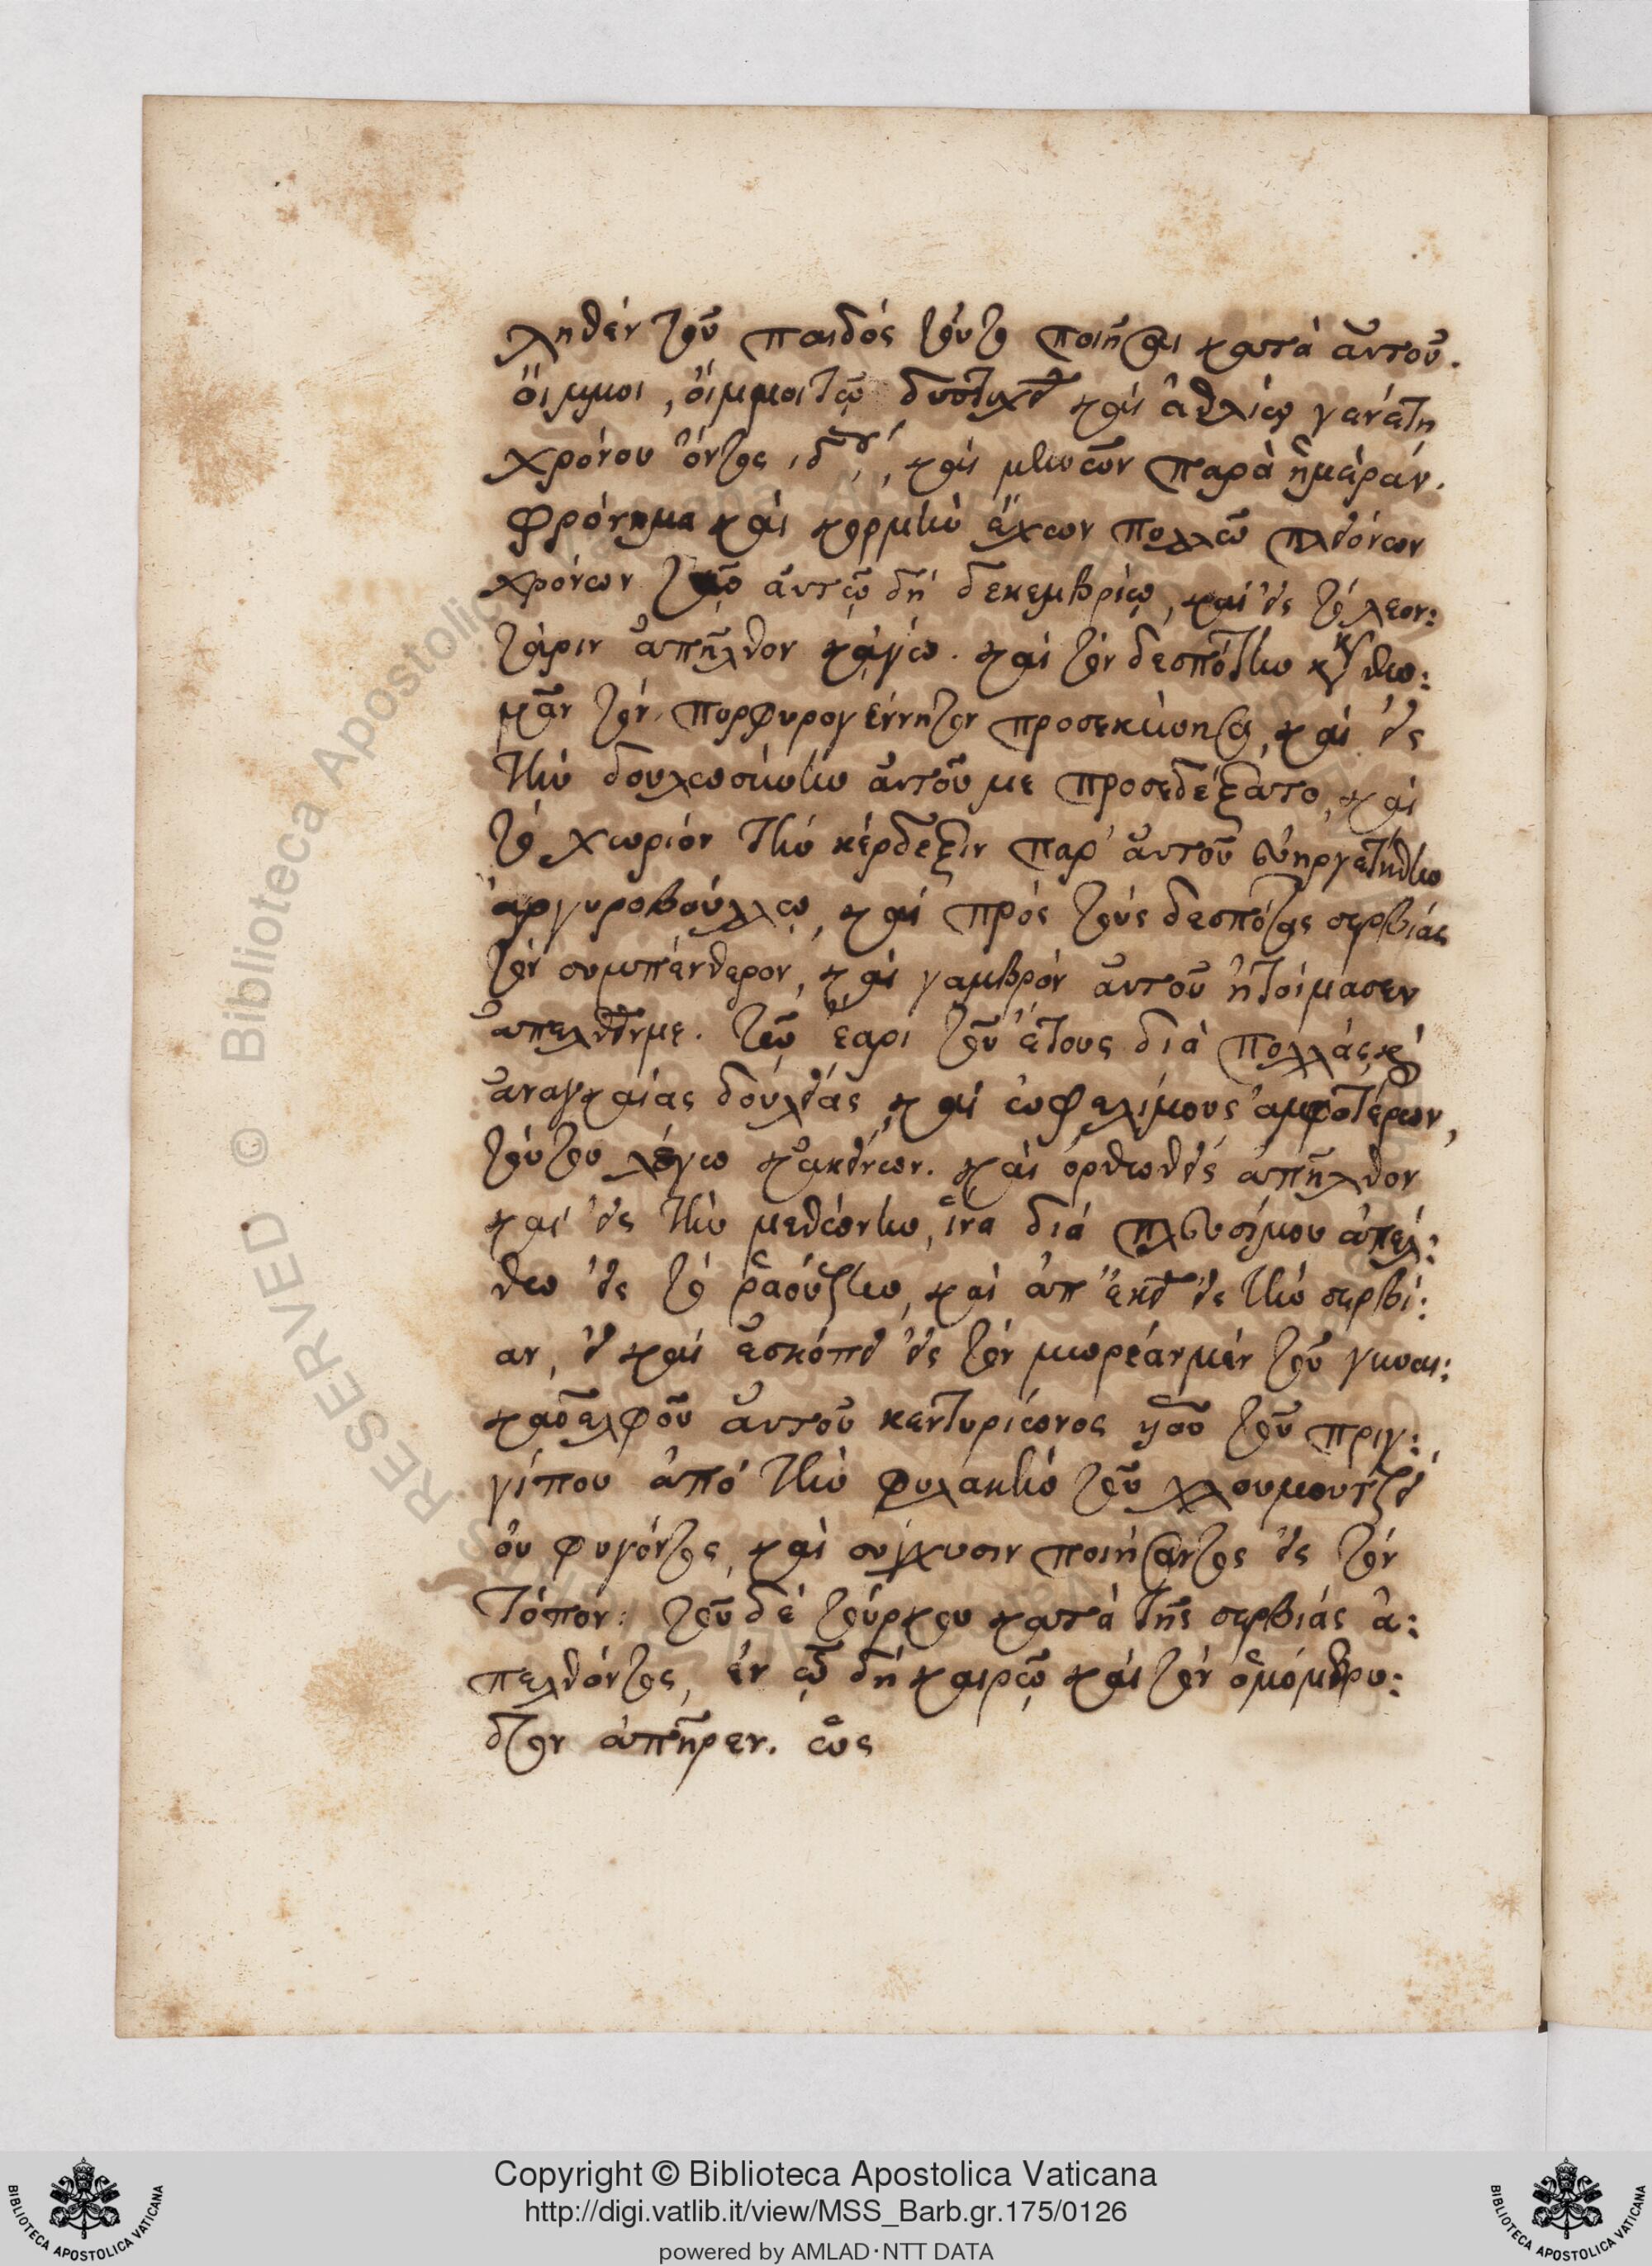 ληθέν τοῦ παιδός τοῦτο ποιῆσαι κατὰ αὐτοῦ.
οἴμμοι, οἴμμοι τῶ δυστυχεῖ καὶ ἀθλίω γενέτη
χρόνου ὄντος ιδ, καὶ μηνῶν παρὰ ἡμέραν.
φρόνημα καὶ κορμὴν ἔχων πολλῶ πλειόνων
χρόνων τῶ αὐτῶ δὴ δεκεμβρίω, καὶ εἰς τὸ λεον:
τάριν ἀπῆλθον κἀγώ. καὶ τὸν δεσπότην κὺρ θω:
μᾶν τὸν πορφυρογέννητον προσεκύνησα, καὶ εἰς
τὴν δουλωσύνην αὐτοῦ με προσεδέξατο, καὶ
τὸ χωριόν τὴν κέρδεξιν παρ' αὐτοῦ εὐηργετήθην
ἀργυροβούλλω, καὶ πρὸς τοὺς δεσπότας σερβίας
τὸν συμπένθερον, καὶ γαμβρόν αὐτοῦ ἡτοίμασεν
ἀπελθεῖν με. τῶ ἔαρι τοῦ ἔτους διὰ πολλάς καὶ
ἀναγκαίας δουλείας, καὶ ὠφελίμους ἀμφοτέρων,
τούτου λέγω κἀκείνων. καὶ ὀρθωθεὶς ἀπῆλθον
καὶ εἰς τὴν μεθώνην, ἵνα διὰ πλευσίμου ἀπέλ:
θω εἰς τὸ ῥαούζην, καὶ ἀπ' ἐκεῖ εἰς τὴν σερβί:
αν, εἰ καὶ ἐσκόπει εἰς τὸν μωρέαν μὲν τοῦ γυναι:
καδελφοῦ αὐτοῦ κεντυρίωνος υἱοῦ τοῦ πριγ:
γίπου ἀπό τὴν φυλακὴν τοῦ χλουμουτζεί
ου φυγόντος, καὶ σύγχυσιν ποιήσαντος εἰς τὸν
τόπον: τοῦ δὲ τούρκου κατὰ τῆς σερβίας ἀ:
πελθόντος, ἐν ὧ δὴ καιρῶ καὶ τὸν ὁμόμπρυ:
δτον ἀπῆρεν. ἕως
Copyright © Biblioteca Apostolica Vaticana
http://digi.vatlib.it/view/MSS_Barb.gr.175/0126
powered by AMLAD·NTT DATA